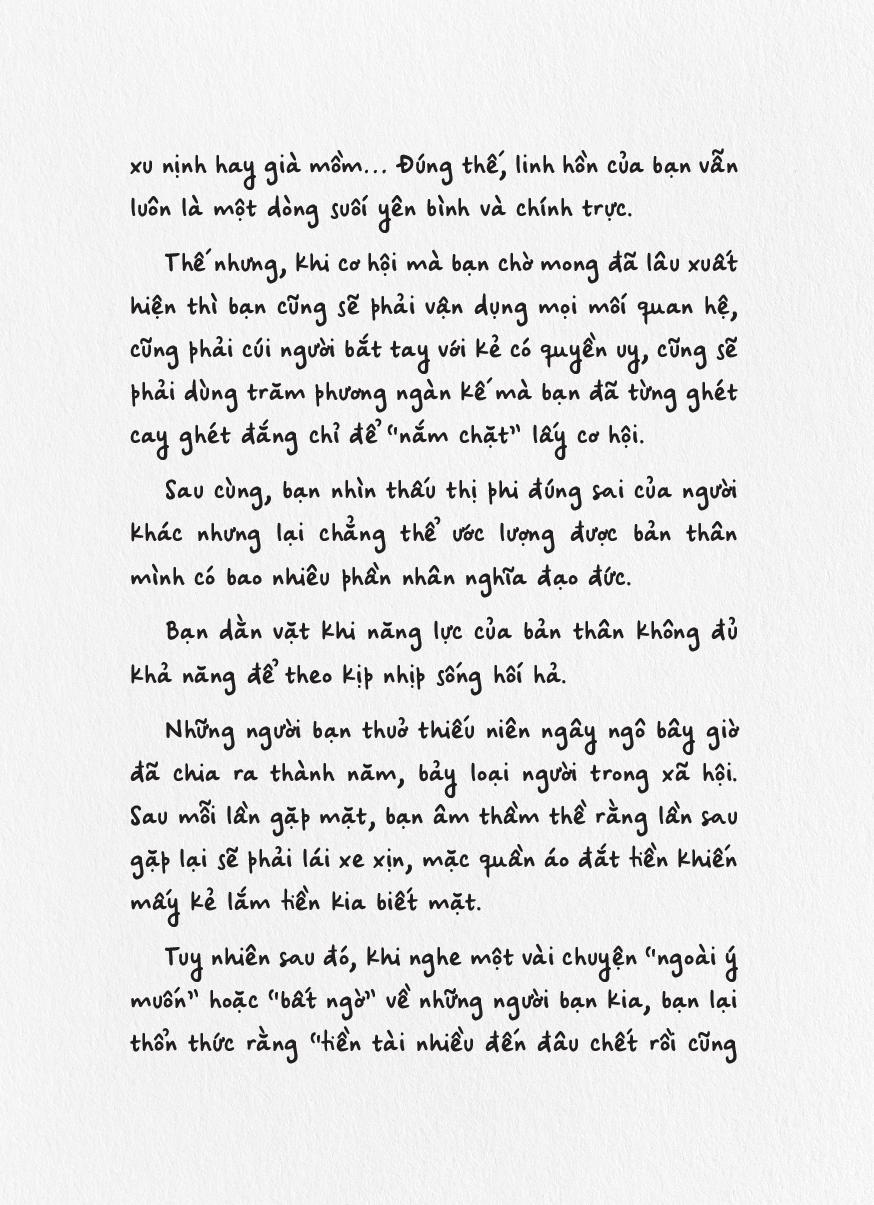 xu nịnh hay già mồm... Đúng thế, linh hồn của bạn vẫn
luôn là một dòng suối yên bình và chính trực.
Thế nhưng, khi cơ hội mà bạn chờ mong đã lâu xuất
hiện thì bạn cũng sẽ phải vận dụng mọi mối quan hệ,
cũng phải cúi người bắt tay với kẻ có quyền uy, cũng sẽ
phải dùng trăm phương ngàn kế mà bạn đã từng ghét
cay ghét đắng chỉ để “nắm chặt” lấy cơ hội.
Sau cùng, bạn nhìn thấu thị phi đúng sai của người
khác nhưng lại chẳng thể ước lượng được bản thân
mình có bao nhiêu phần nhân nghĩa đạo đức.
Bạn dằn vặt khi năng lực của bản thân không đủ
khả năng để theo kịp nhịp sống hối hả.
Những người bạn thuở thiếu niên ngây ngô bây giờ
đã chia ra thành năm, bảy loại người trong xã hội.
Sau mỗi lần gặp mặt, bạn âm thầm thề rằng lần sau
gặp lại sẽ phải lái xe xịn, mặc quần áo đắt tiền khiến
mấy kẻ lắm tiền kia biết mặt.
Tuy nhiên sau đó, khi nghe một vài chuyện “ngoài ý
muốn” hoặc “bất ngờ” về những người bạn kia, bạn lại
thổn thức rằng “tiền tài nhiều đến đâu chết rồi cũng